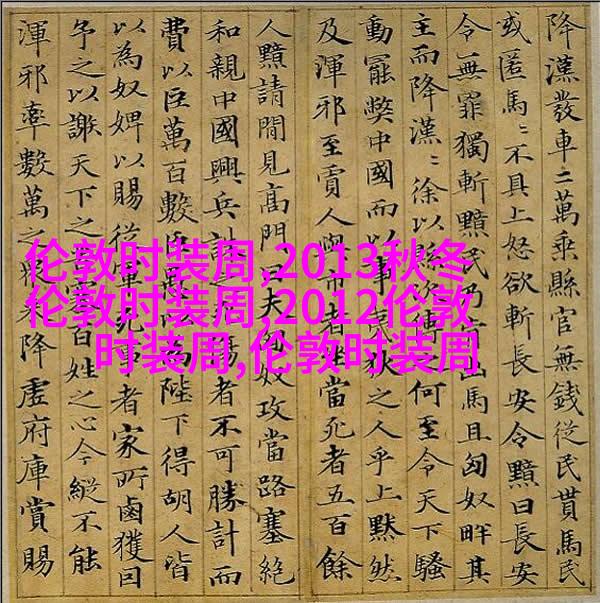 伦敦时装周,2013秋冬
伦敦时装周,2012伦敦
时装周,伦敦时装周
降漢發車二萬乘縣官無錢從民貰馬民
或匿馬〻不具上怒欲斬長安令黯曰長安
令無罪獨斬黯民乃出馬且匈奴畔其
主而降漢〻徐以縣次傳何至令天下騷
動罷弊中國而以事夷狄之人乎上黙然
及渾邪至賈人與市者坐當死者五百餘
人黯請閒見高門曰夫匈奴攻當路塞絕
和親中國興兵傷者不可勝計而
費以巨萬百數臣為陛下得胡人皆
以為奴婢以賜從軍死者家所鹵獲因
予之以謝天下之塞百姓之心今縱不能
渾邪率數萬之來降虛府庫賞賜